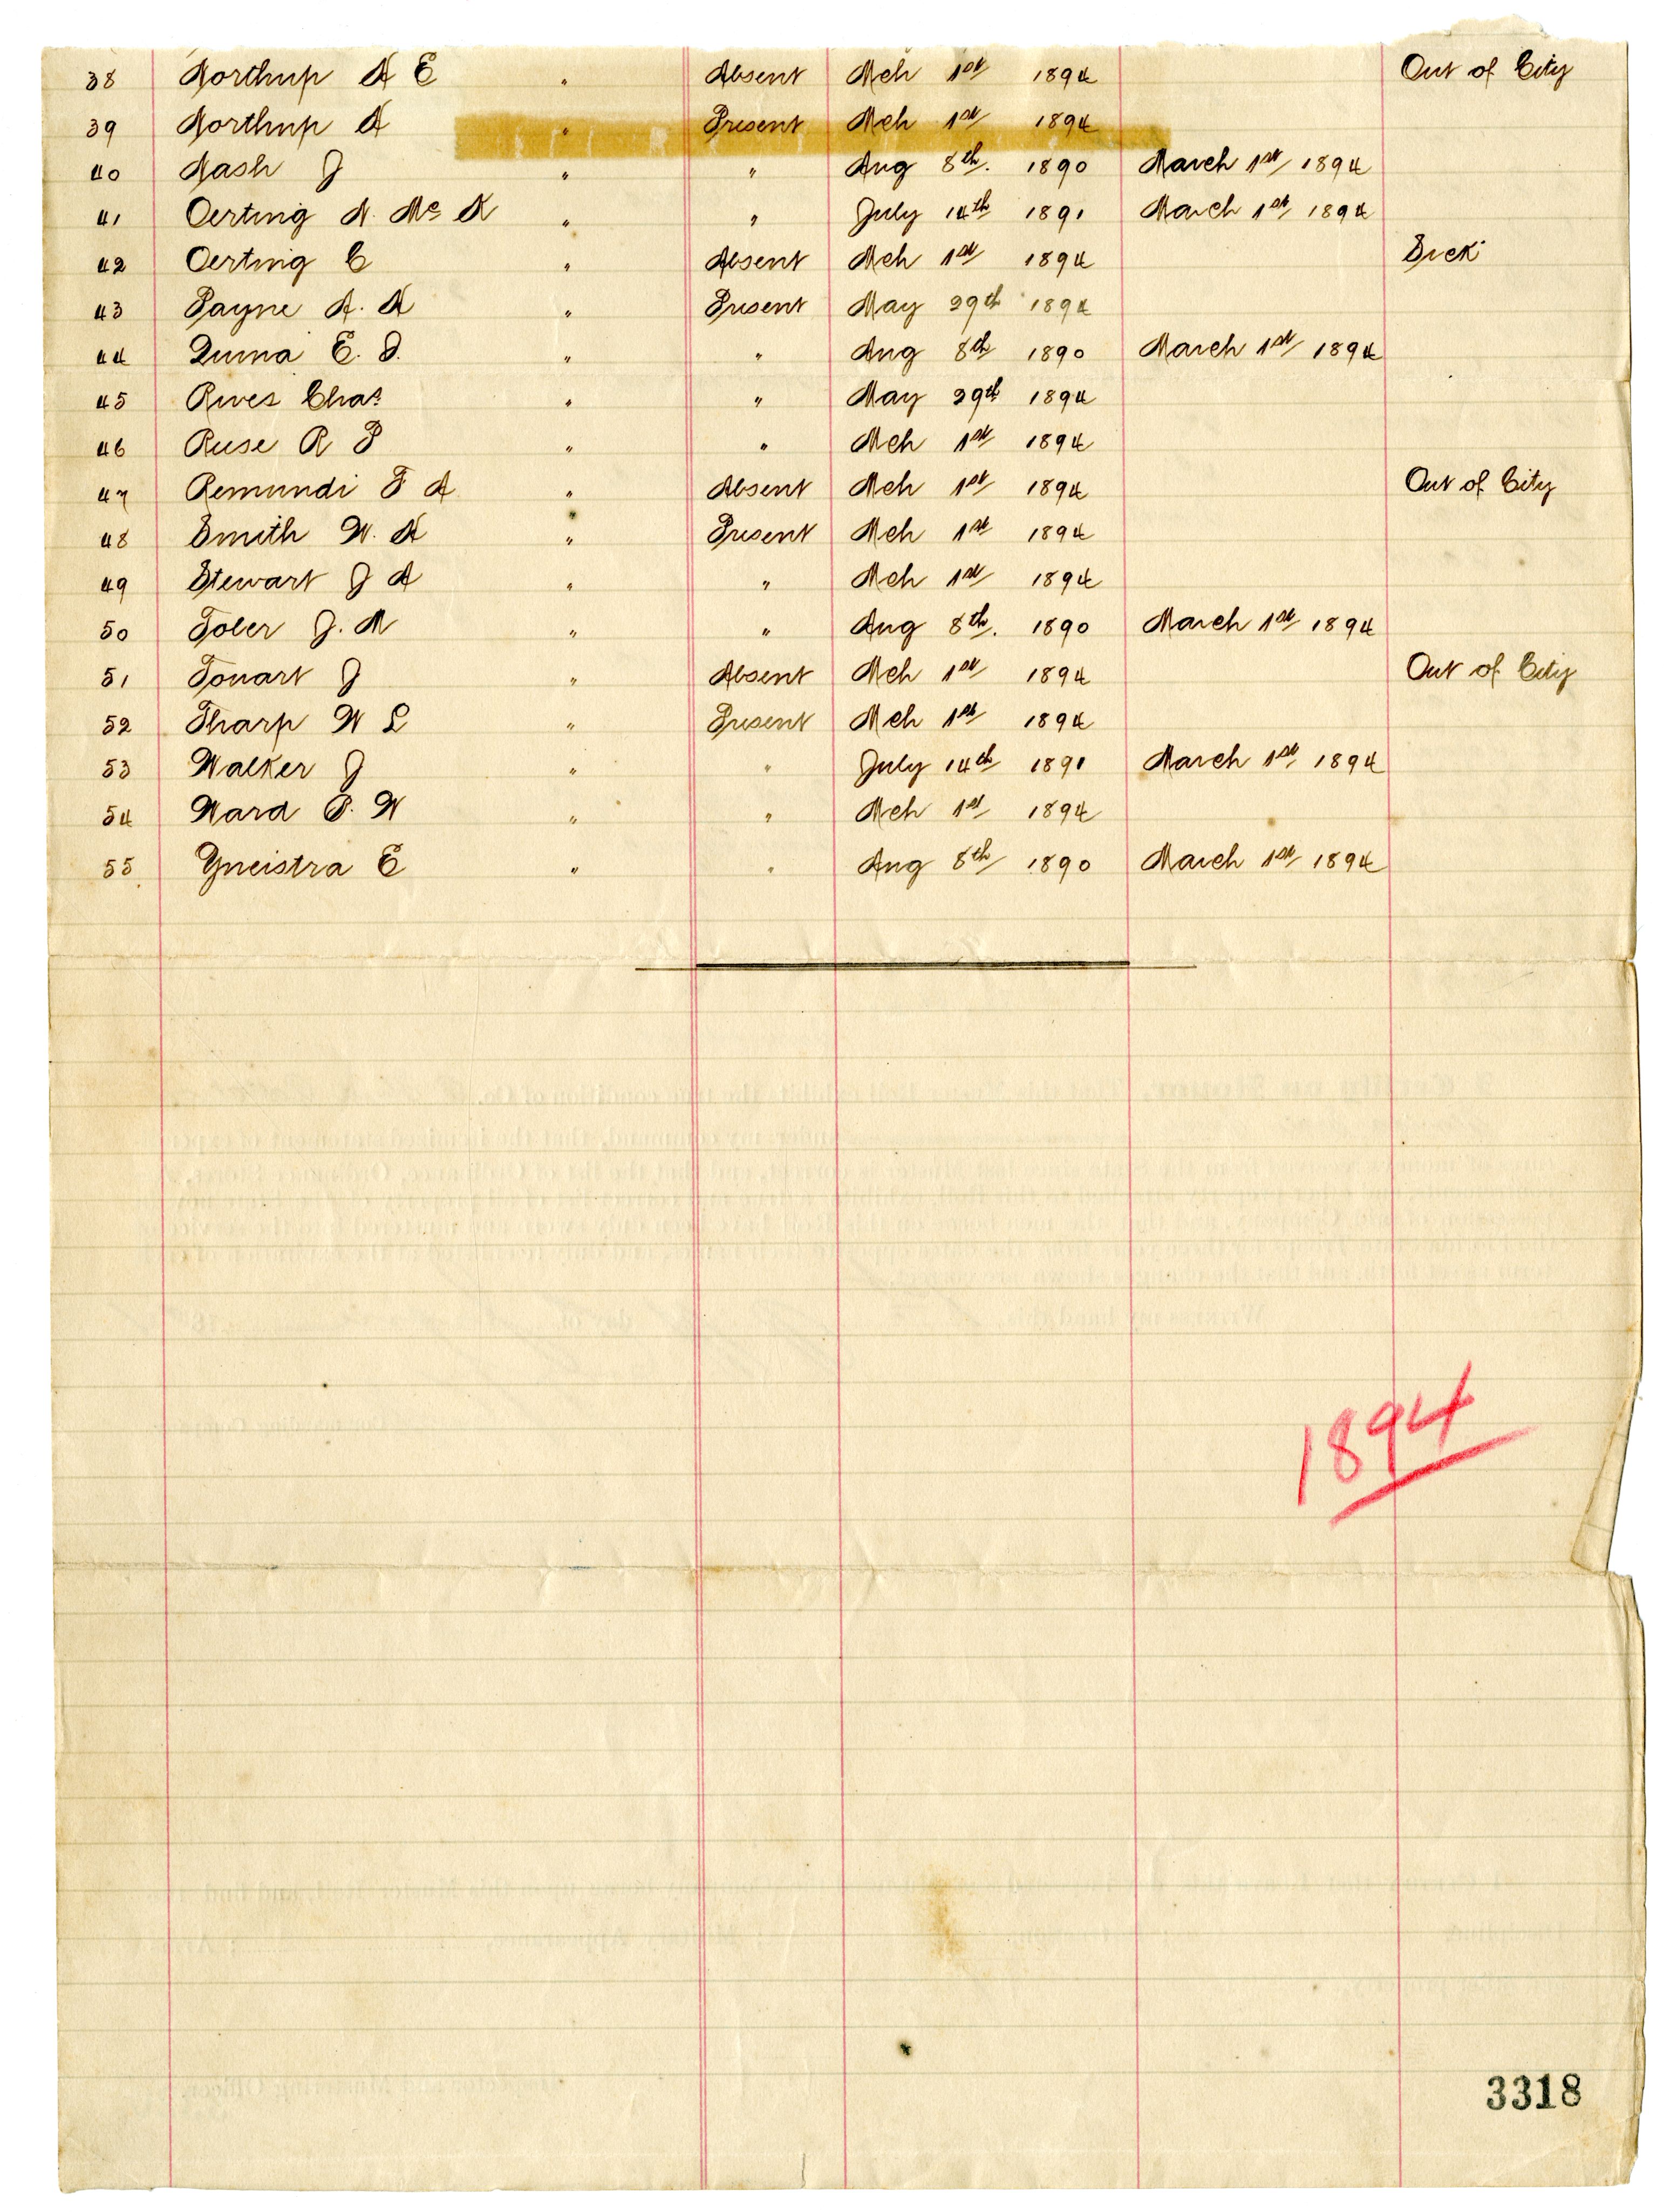 38 Northup A E " Absent Mch 1st 1894 Out of City
39 Northup A " Present Mch 1st 1894
40 Nash J " " Aug 8th. 1890 March 1st 1894
41 Oerting N. Mc K " " July 14th 1891 March 1st 1894
42 Oerting C " Absent Mch 1st 1894 Sick
43 Payne A. H " Present May 29th 1894
44 Quina E. J. " " Aug 8th 1890 March 1st 1894
45 Rives Chas. " " May 29th 1894
46 Ruse R P " " Mch 1st 1894
47 Remundi F A " Absent Mch 1st 1894 Out of City
48 Smith W. H " Present Mch 1st 1894
49 Stewart J A " " Mch 1st 1894
50 Tober J. M " " Aug 8th. 1890 March 1st 1894
51 Touart J " Absent Mch 1st 1894 Out of City
52 Tharp W L " Present Mch 1st 1894
53 Walker J " " July 14th 1891 March 1st 1894
54 Ward W " " Mch 1st 1894
55 Yneistra E " " Aug 8th 1890 March 1st 1894
1894
3318